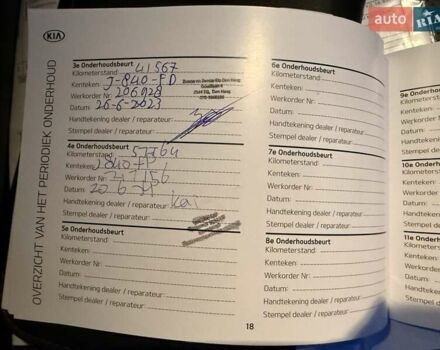 auto RIA
KIA
OVERZICHT VAN HET PERIODIEK ONDERHOUD
3e Onderhoudsbeurt
Kilometerstand: 41567
Kenteken: J-840-FD
Werkorder Nr: 206928
Datum: 26-6-2023
Handtekening dealer / reparateur:
Stempel dealer / reparateur:
4e Onderhoudsbeurt
Kilometerstand: 57764
Kenteken:
Werkorder Nr:
Datum:
Handtekening dealer / reparateur:
Stempel dealer / reparateur:
5e Onderhoudsbeurt
Kilometerstand:
Kenteken:
Werkorder Nr:
Datum:
Handtekening dealer / reparateur:
Stempel dealer / reparateur:
6e Onderhoudsbeurt
Kilometerstand:
Kenteken:
Werkorder Nr:
Datum:
Handtekening dealer / reparateur:
Stempel dealer / reparateur:
7e Onderhoudsbeurt
Kilometerstand:
Kenteken:
Werkorder Nr:
Datum:
Handtekening dealer / reparateur:
Stempel dealer / reparateur:
8e Onderhoudsbeurt
Kilometerstand:
Kenteken:
Werkorder Nr:
Datum:
Handtekening dealer / reparateur:
Stempel dealer / reparateur:
18
9e Onder
Kilometer
Kenteken
Werkorder
Datum:
Handteken
Stempel de
10e Onder
Kilometers
Kenteken:
Werkorder
Datum:
Handteken
Stempel d
11e Onder
Kilometer
Kenteken
Werkorde
Datum:
Handteke
Stempel